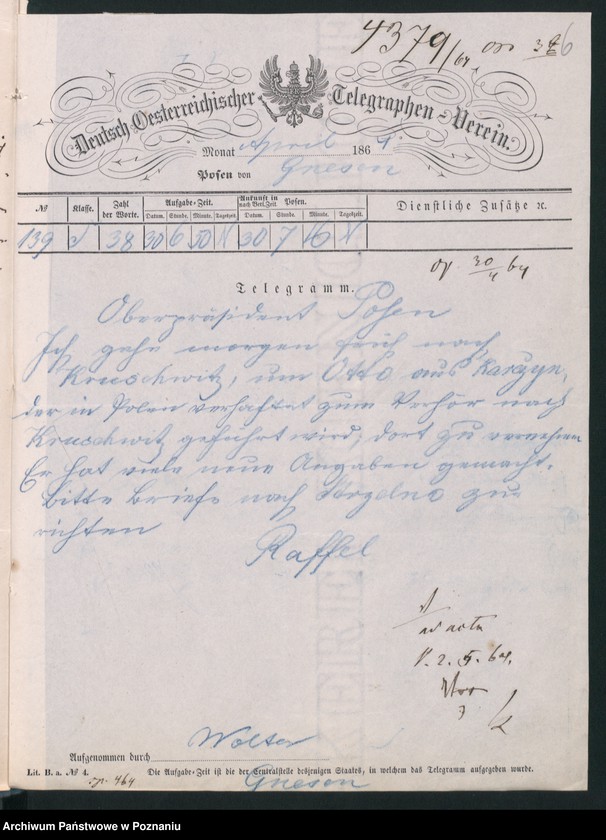 4379/64
Deutsch-Oesterreichischer Telegraphen-Verein.
Monat April 1864
Posen von Gnesen
№ Klasse. Zahl der Worte. Aufgabe-Zeit. Ankunft in Posen. nach Berl. Zeit Dienstliche Zusätze ꝛc.
Datum. Stunde. Minute. Tageszeit. Datum. Stunde. Minute. Tageszeit.
139 38 30 6 50 N 30 7 16 N
30/4 64
Telegramm.
Oberpräsident Posen
Ich gehe morgen früh nach
Kruschwitz, um Otto aus Karzyn,
der in Polen verhaftet zum Verhör nach
Kruschwitz geführt wird, dort zu vernehmen
Er hat viele neue Angaben gemacht.
Bitte Briefe nach zu
richten
Raffel
ad acta
P. 2. 5. 64.
Aufgenommen durch Wolter
Lit. B. a. № 4. Die Aufgabe-Zeit ist die der Centralstelle desjenigen Staates, in welchem das Telegramm aufgegeben wurde.
Gnesen
Archiwum Państwowe w Poznaniu